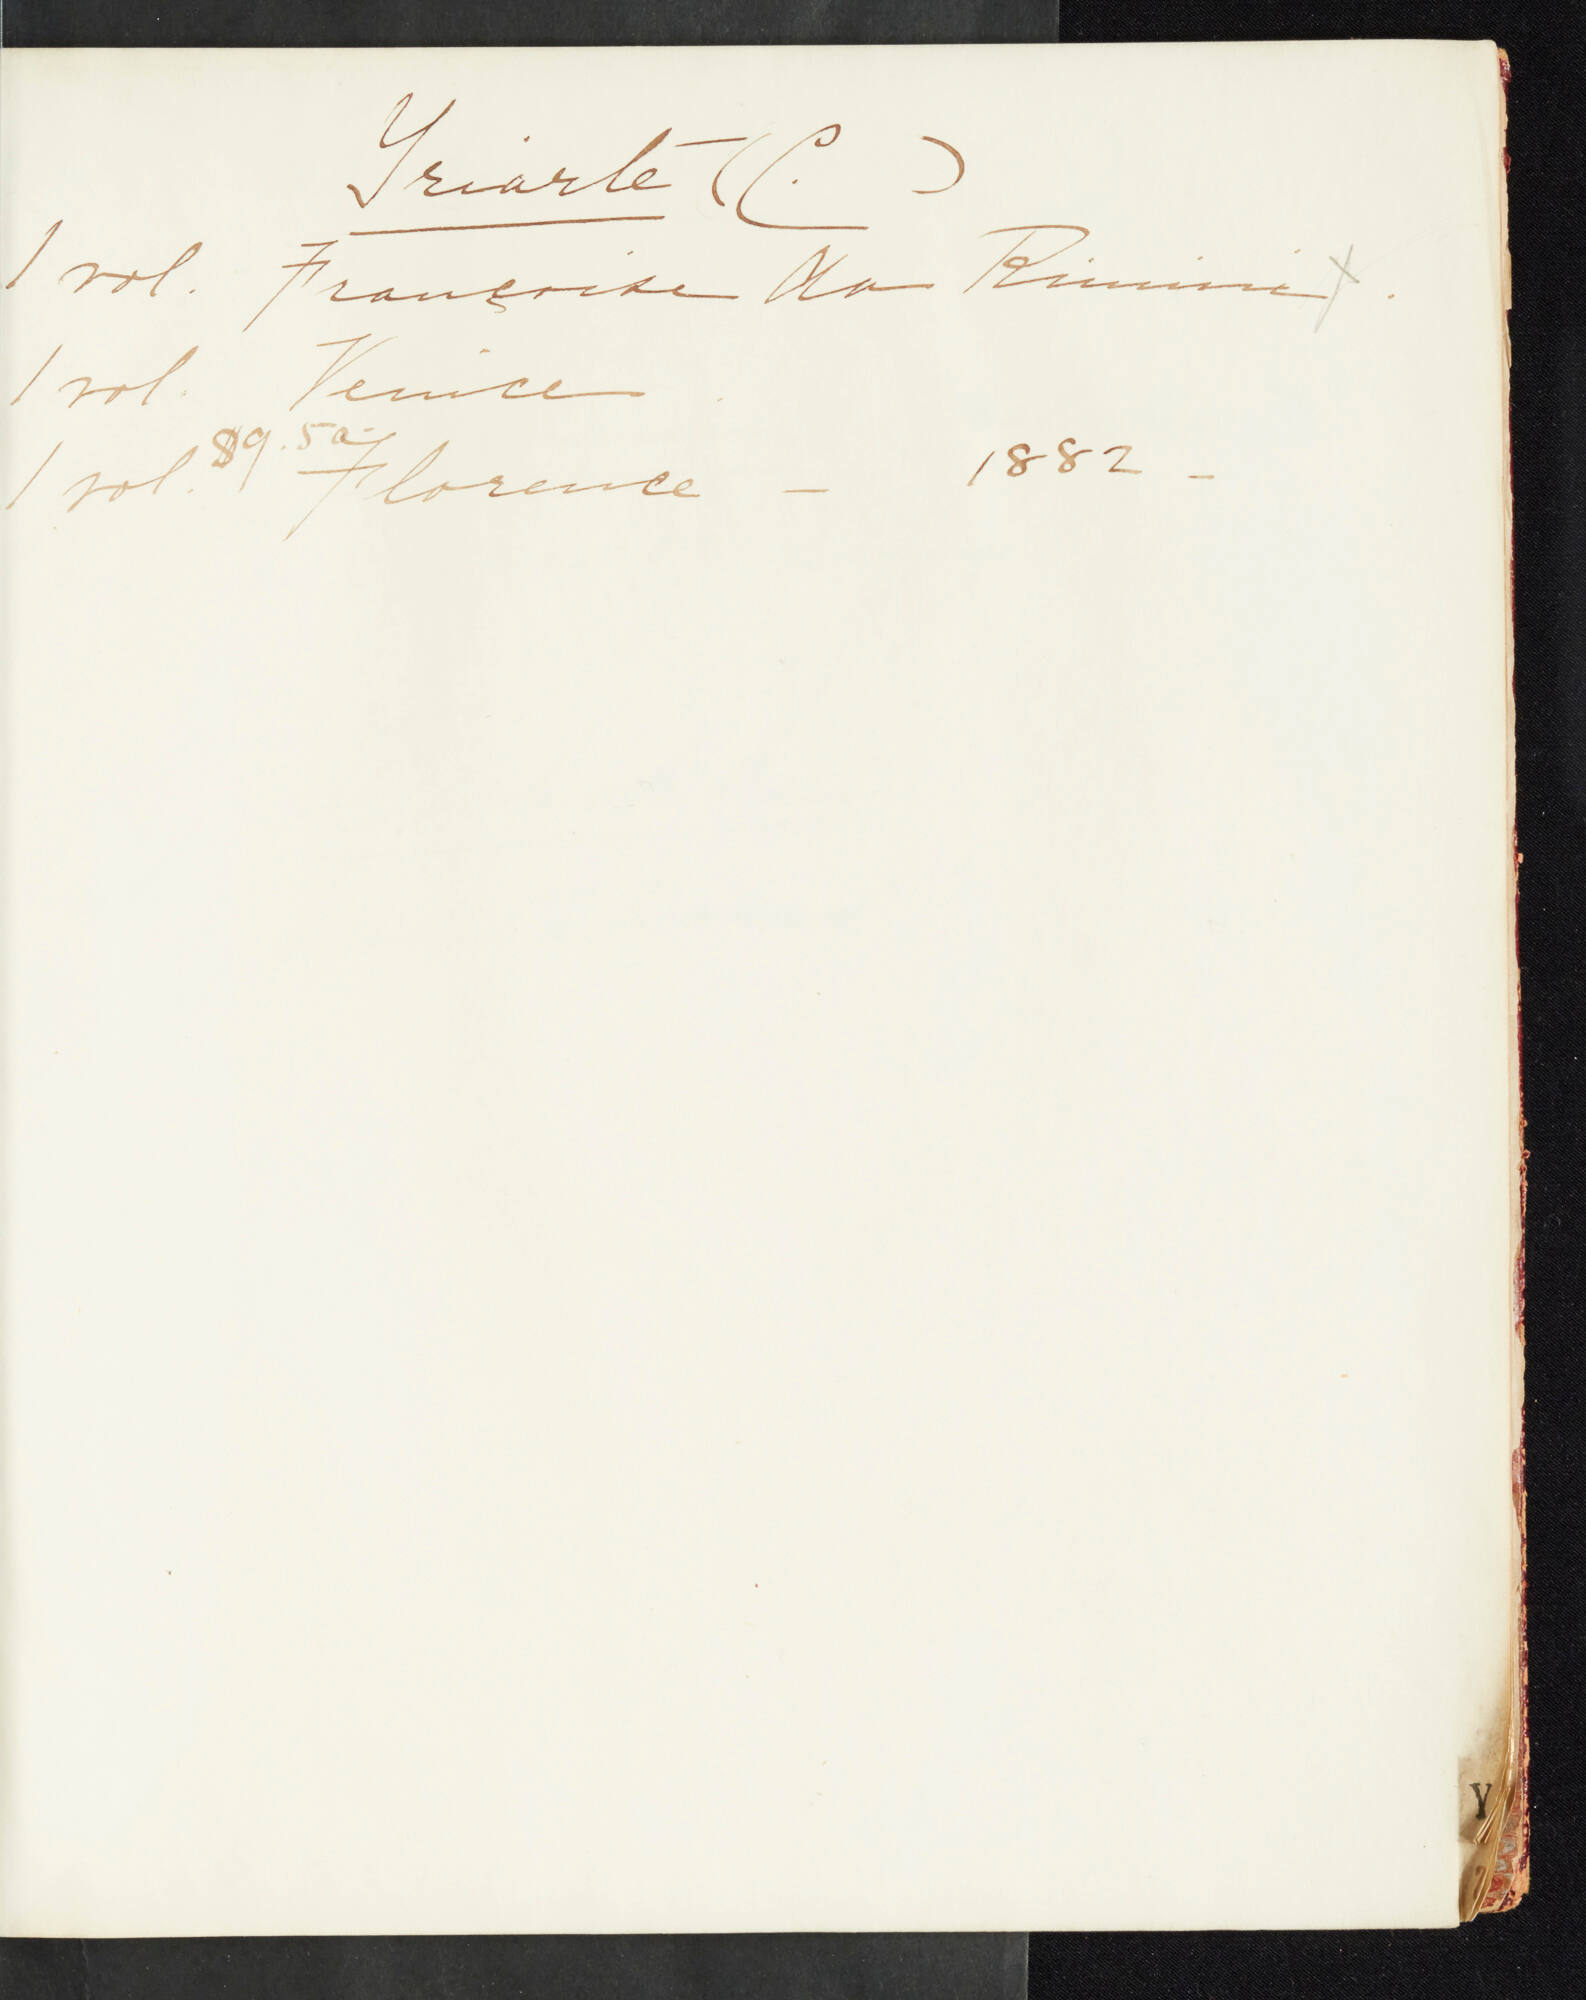 Yriarte (C. )
1 vol. Françoise da Rimini x .
1 vol. Venice
$9.50
1 vol. Florence - 1882 -
Y